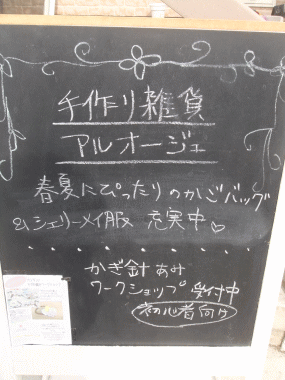 手作り雑貨
アルオージェ
春夏にぴったりのかごバッグ
&シェリーメイ服 充実中♡
かぎ針あみ
ワークショップ 受付中
初心者向け